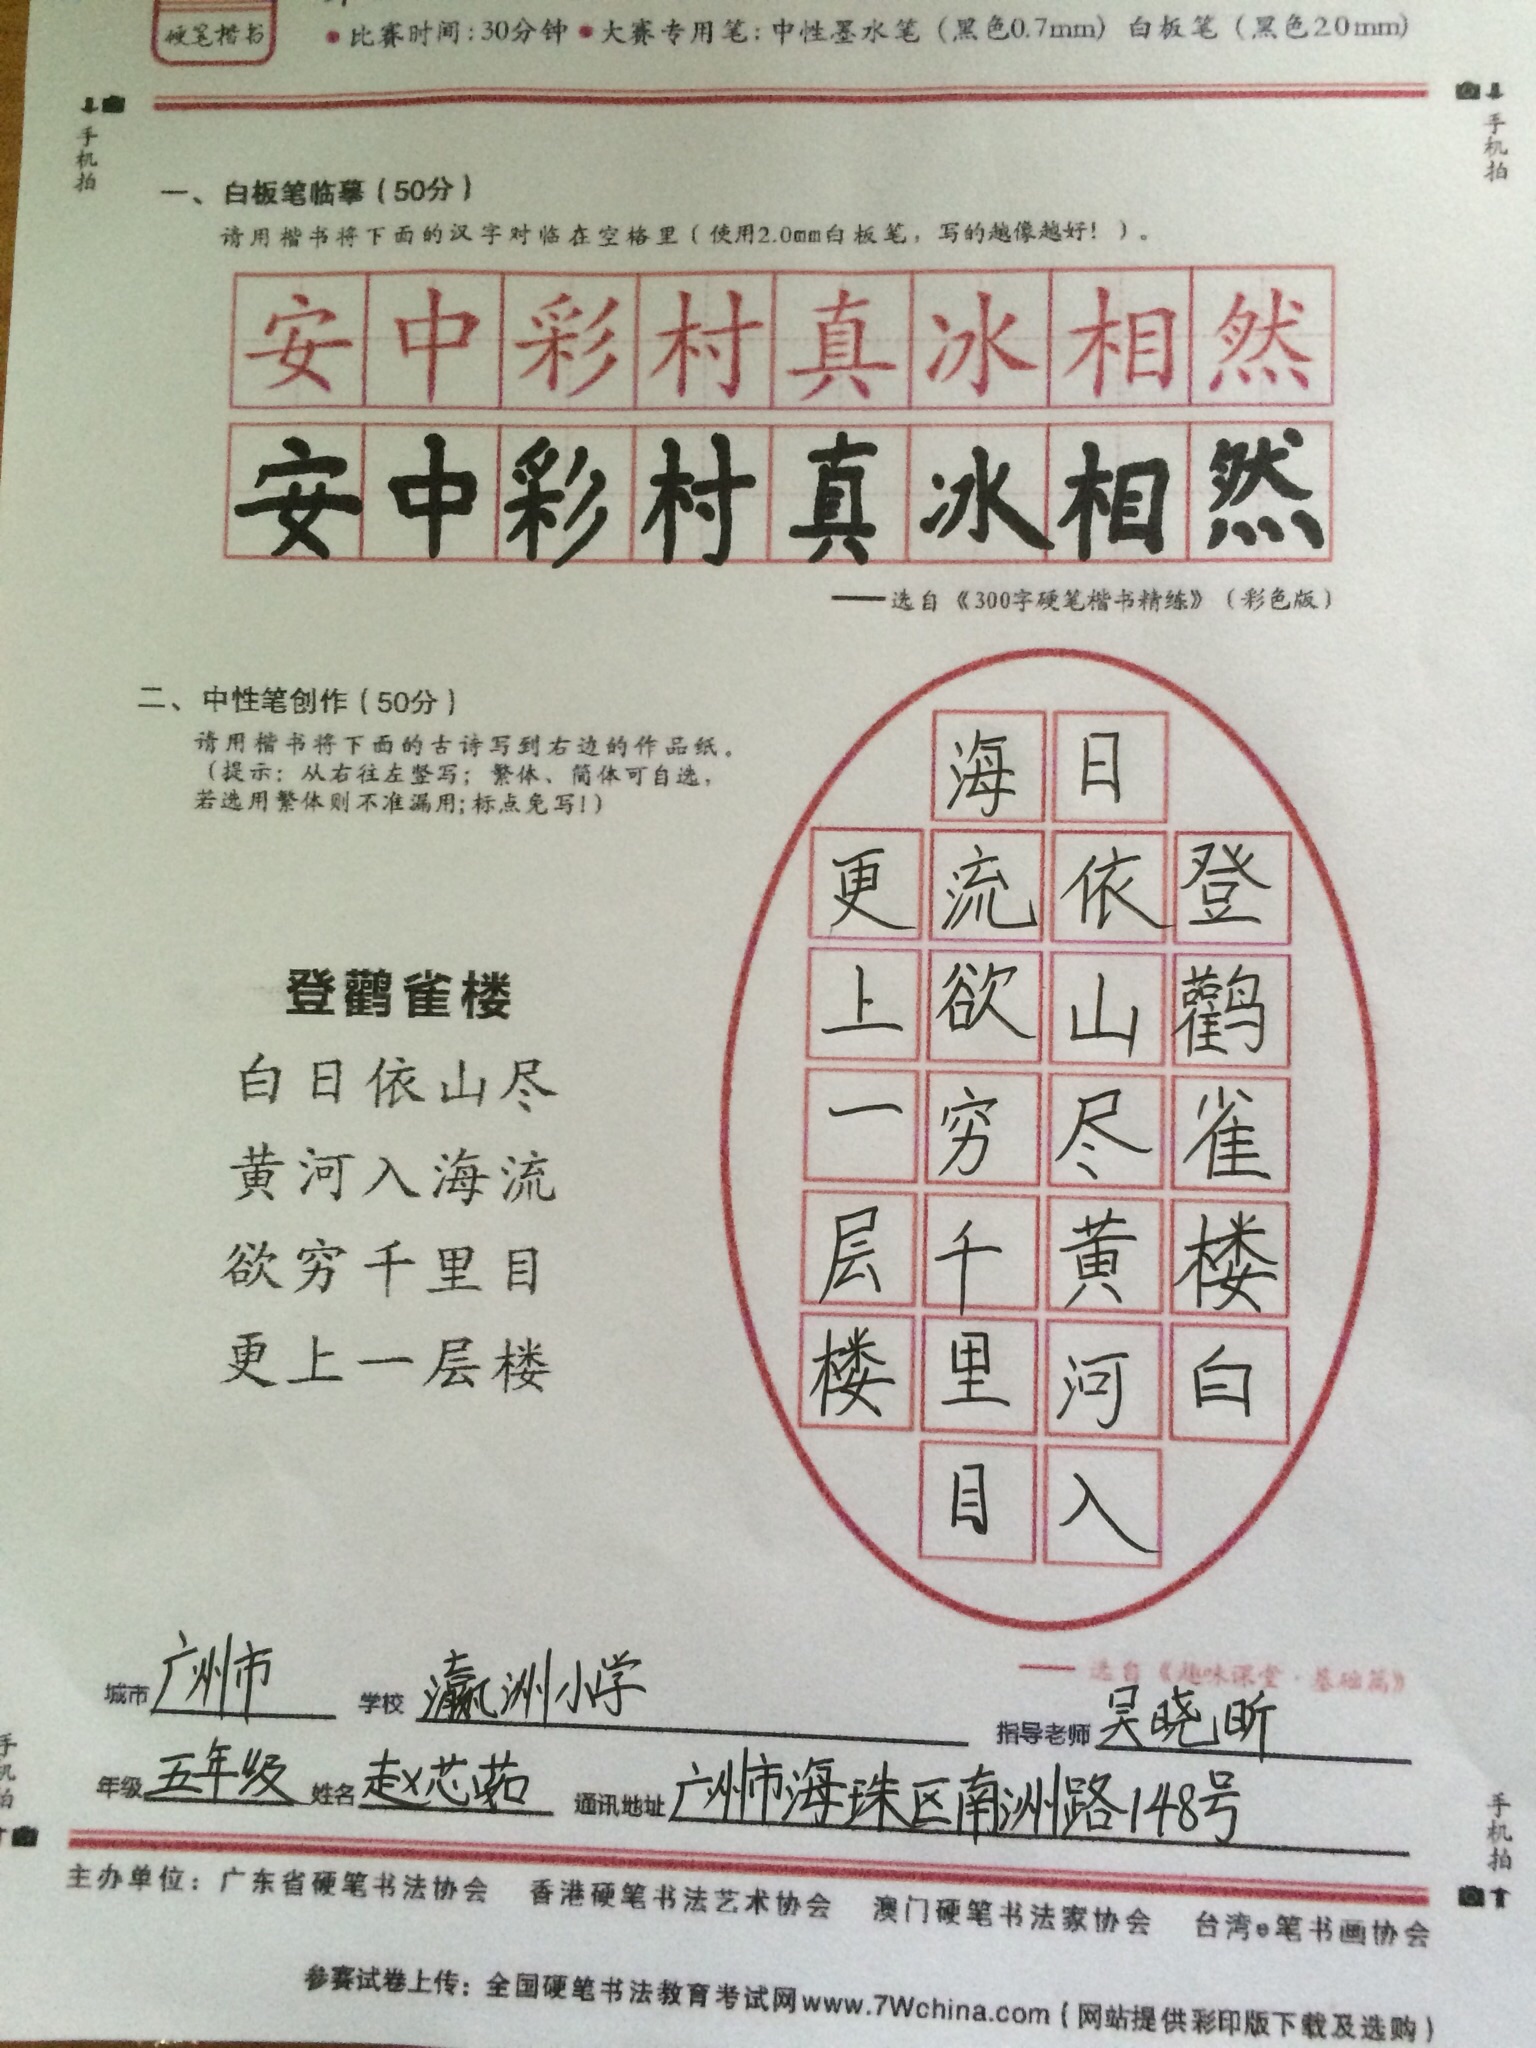 硬笔楷书
•比赛时间:30分钟 •大赛专用笔:中性墨水笔（黑色0.7mm）白板笔（黑色2.0mm）
手机拍
手机拍
一、白板笔临摹（50分）
请用楷书将下面的汉字对临在空格里（使用2.0mm白板笔，写的越像越好！）。
安中彩村真冰相然
安中彩村真冰相然
——选自《300字硬笔楷书精练》（彩色版）
二、中性笔创作（50分）
请用楷书将下面的古诗写到右边的作品纸。
（提示：从右往左竖写；繁体、简体可自选，
若选用繁体则不准漏用;标点免写!）
登鸛雀楼
白日依山尽
黄河入海流
欲穷千里目
更上一层楼
登鸛雀楼白
日依山尽黄河入
海流欲穷千里目
更上一层楼
——选自《趣味课堂·基础篇》
城市 广州市 学校 瀛洲小学 指导老师 吴晓昕
年级 五年级 姓名 赵芯茹 通讯地址 广州市海珠区南洲路148号
手机拍
手机拍
主办单位：广东省硬笔书法协会 香港硬笔书法艺术协会 澳门硬笔书法家协会 台湾e笔书画协会
参赛试卷上传：全国硬笔书法教育考试网www.7Wchina.com（网站提供彩印版下载及选购）